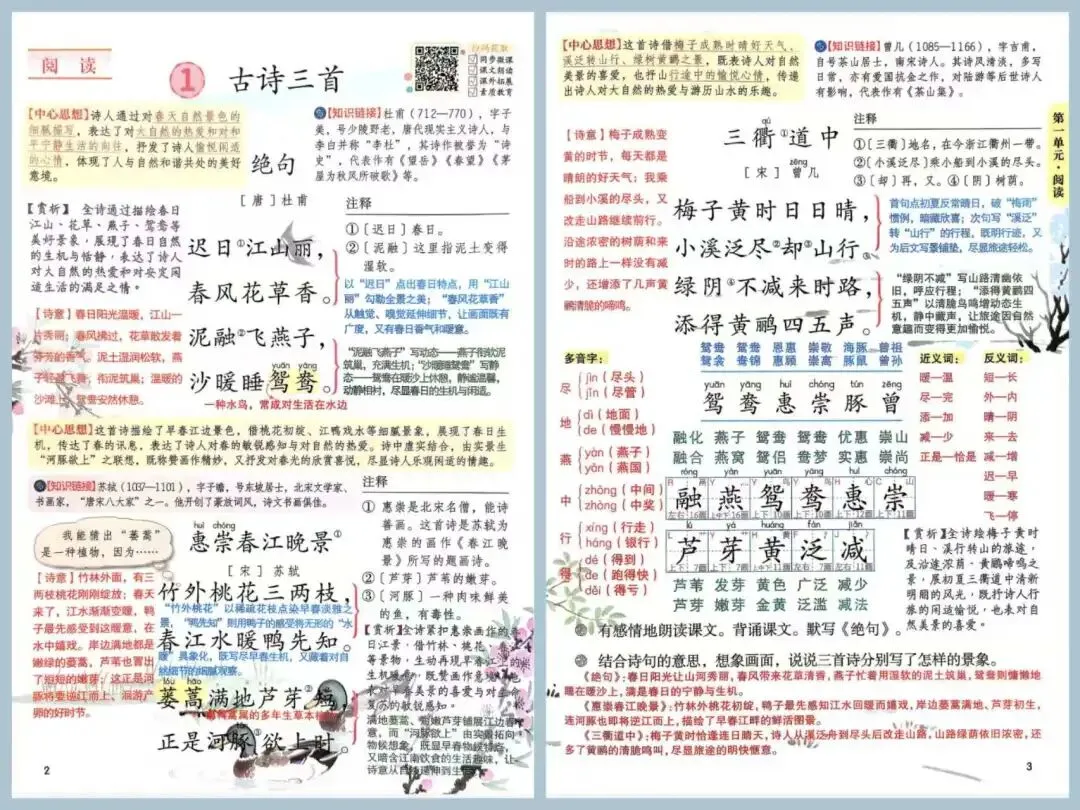 阅 读
1 古诗三首
扫码获取
同步微课
课文朗读
课外拓展
素质教育
【中心思想】诗人通过对春天自然景色的
细腻描写，表达了对大自然的热爱和对和
平宁静生活的向往，抒发了诗人愉悦闲适
的心情，体现了人与自然和谐共处的美好
意境。
【知识链接】杜甫（712—770），字子
美，号少陵野老，唐代现实主义诗人，与
李白并称“李杜”，其诗作被誉为“诗
史”，代表作有《望岳》《春望》《茅
屋为秋风所破歌》等。
绝句
［唐］杜甫
【赏析】 全诗通过描绘春日
江山、花草、燕子、鸳鸯等
美好景象，展现了春日自然
的生机与恬静，表达了诗人
对大自然的热爱和对安定闲
适生活的满足之情。
迟日①江山丽，
春风花草香。
泥融②飞燕子，
yuān yāng
沙暖睡鸳鸯。
一种水鸟，常成对生活在水边
注释
①〔迟日〕春日。
②〔泥融〕这里指泥土变得
湿软。
以“迟日”点出春日特点，用“江山
丽”勾勒全景之美；“春风花草香”
从触觉、嗅觉延伸细节，让画面既有
广度，又有春日香气和暖意。
“泥融飞燕子”写动态——燕子衔软泥
筑巢，充满生机；“沙暖睡鸳鸯”写静
态——鸳鸯在暖沙上休憩，静谧温馨，
动静相衬，尽显春日的生机与闲适。
【诗意】春日阳光温暖，江山一
片秀丽；春风拂过，花草散发着
芬芳的香气。泥土湿润松软，燕
子轻盈飞舞，衔泥筑巢；温暖的
沙滩上，鸳鸯安然休憩。
【中心思想】这首诗描绘了早春江边景色，借桃花初绽、江鸭戏水等细腻景象，展现了春日生
机，传达了春的讯息，表达了诗人对春的敏锐感知与对自然的热爱。诗中虚实结合，由实景生
“河豚欲上”之联想，既称赞画作精妙，又抒发对春光的欣赏喜悦，尽显诗人乐观闲适的情趣。
【知识链接】苏轼（1037—1101），字子瞻，号东坡居士，北宋文学家、
书画家，“唐宋八大家”之一。他开创了豪放词风，诗文书画俱佳。
我能猜出“蒌蒿”
是一种植物，因为……
huì chóng
惠崇春江晚景①
［宋］苏轼
竹外桃花三两枝，
“竹外桃花”以稀疏花枝点染早春淡雅之
景，“鸭先知”则用鸭子的感受将无形的“水
春江水暖鸭先知。
暖”具象化，既写尽早春生机，又藏着对自
然细节的细腻观察。
lóu hāo
蒌蒿满地芦芽②短，
正是河豚③欲上时。
【诗意】竹林外面，有三
两枝桃花刚刚绽放；春天
来了，江水渐渐变暖，鸭
子最先感受到这暖意，在
水中嬉戏。岸边满地都是
嫩绿的蒌蒿，芦苇也冒出
了短短的嫩芽，这正是河
豚将要逆江而上、洄游产
卵的好时节。
注释
① 惠崇是北宋名僧，能诗
善画。这首诗是苏轼为
惠崇的画作《春江晚
景》所写的题画诗。
②〔芦芽〕芦苇的嫩芽。
③〔河豚〕一种肉味鲜美
的鱼，有毒性。
【赏析】全诗紧扣惠崇画作的早
春江景，借竹林、桃花、
等景物，生动再现早春江
2
【中心思想】这首诗借梅子成熟时晴好天气、
溪泛转山行、绿树黄鹂之景，既表诗人对自然
美景的喜爱，也抒山行途中的愉悦心情，传递
出诗人对大自然的热爱与游历山水的乐趣。
【知识链接】曾几（1085—1166），字吉甫，
自号茶山居士，南宋诗人。其诗风清淡，多写
日常，亦有爱国抗金之作，对陆游等后世诗人
有影响，代表作有《茶山集》。
第一单元·阅读
qú
三衢①道中
zēng
［宋］曾几
梅子黄时日日晴，
小溪泛尽②却③山行。
绿阴④不减来时路，
添得黄鹂四五声。
【诗意】梅子成熟变
黄的时节，每天都是
晴朗的好天气；我乘
船到小溪的尽头，又
改走山路继续前行。
沿途浓密的树荫和来
时的路上一样没有减
少，还增添了几声黄
鹂清脆的啼鸣。
注释
①〔三衢〕地名，在今浙江衢州一带。
②〔小溪泛尽〕乘小船到小溪的尽头。
③〔却〕再，又。④〔阴〕树荫。
首句点初夏反常晴日，破“梅雨”
惯例，暗藏欣喜；次句写“溪泛”
转“山行”的行程，既明行迹，又
为后文写景铺垫，尽显旅途轻松。
“绿阴不减”写山路清幽依
旧，呼应行程；“添得黄鹂四
五声”以清脆鸟鸣增动态生
机，静中藏声，让旅途因自然
意趣而变得更加愉悦。
多音字：
尽 jǐn（尽头）
jǐn（尽管）
地 dì（地面）
de（慢慢地）
燕 yàn（燕子）
yān（燕国）
中 zhōng（中间）
zhòng（中奖）
行 xíng（行走）
háng（银行）
得 dé（得到）
de（跑得快）
děi（得亏）
鸳鸯 鸳鸯 恩惠 崇敬 海豚 曾祖
鸳衾 鸯锦 恩顾 崇高 豚鼠 曾孙
yuān yāng huì chóng tún zēng
鸳 鸯 惠 崇 豚 曾
融化 燕子 鸳鸯 鸳鸯 优惠 崇山
融合 燕窝 鸳侣 鸯梦 实惠 崇尚
róng yàn yuān yāng huì chóng
融 燕 鸳 鸯 惠 崇
左右：16画 上中下：16画 上下：10画 上下：10画 上下：12画 上下：11画
lú yá huáng fàn jiǎn
芦 芽 黄 泛 减
芦苇 发芽 黄色 广泛 减少
芦笋 嫩芽 金黄 泛滥 减法
近义词：
暖—温
尽—完
添—加
减—少
正是—恰是
反义词：
短—长
外—内
晴—阴
来—去
减—增
迟—早
暖—寒
飞—停
【赏析】全诗绘梅子黄时
晴日、溪行转山的旅途，
及沿途浓荫、黄鹂鸣唱之
景，展初夏三衢道中清新
明丽的风光，既抒诗人行
旅的闲适愉悦，也表对自
然美景的喜爱。
有感情地朗读课文。背诵课文。默写《绝句》。
结合诗句的意思，想象画面，说说三首诗分别写了怎样的景象。
《绝句》：春日阳光让山河秀丽，春风带来花草清香，燕子忙着用湿软的泥土筑巢，鸳鸯则慵懒地
睡在暖沙上，满是春日的宁静与生机。
《惠崇春江晚景》：竹外桃花初绽，鸭子最先感知江水回暖而嬉戏，岸边蒌蒿满地、芦芽初生，
连河豚也即将逆江而上，描绘了早春江畔的鲜活图景。
《三衢道中》：梅子黄时恰逢连日晴天，诗人从溪泛舟到尽头后改走山路，山路绿荫依旧浓密，还
多了黄鹂的清脆鸣叫，尽显旅途的明快惬意。
3